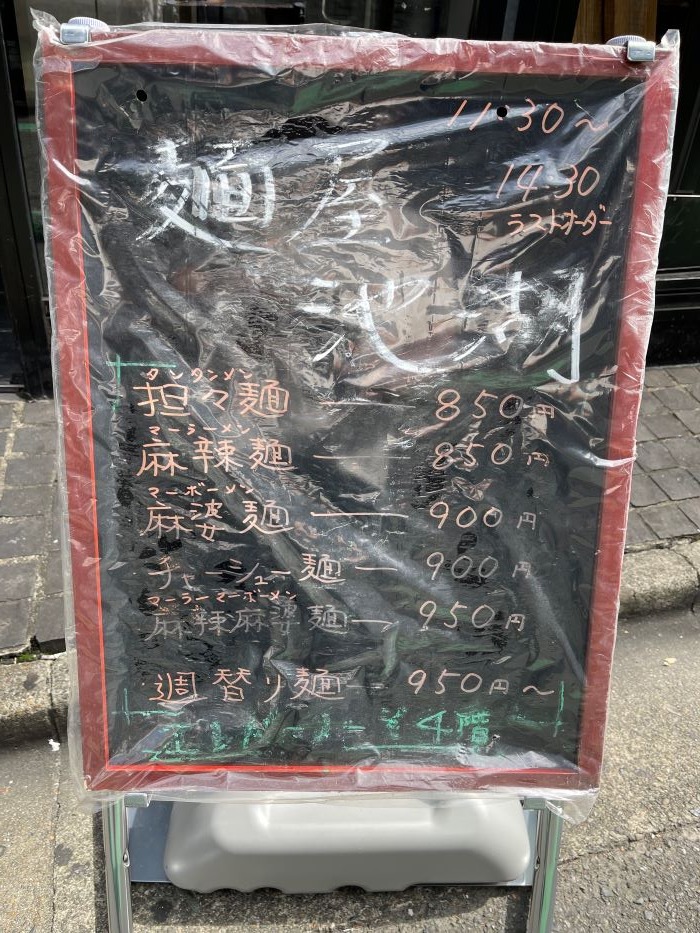 11:30~
14:30
ラストオーダー
麺屋
タンタンメン
担々麺 850円
マーラーメン
麻辣麺 850円
マーボーメン
麻婆麺 900円
チャーシュー麺 900円
マーラーマーボーメン
麻辣麻婆麺 950円
週替り麺 950円~
エレベーターで4階